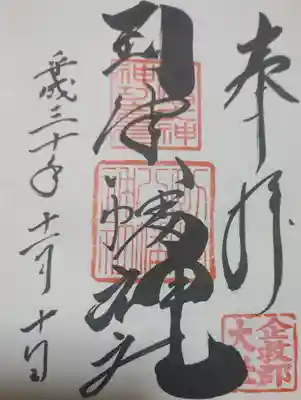 奉拝
企救郡
大社
到津八幡神社
平成三十年十一月十日